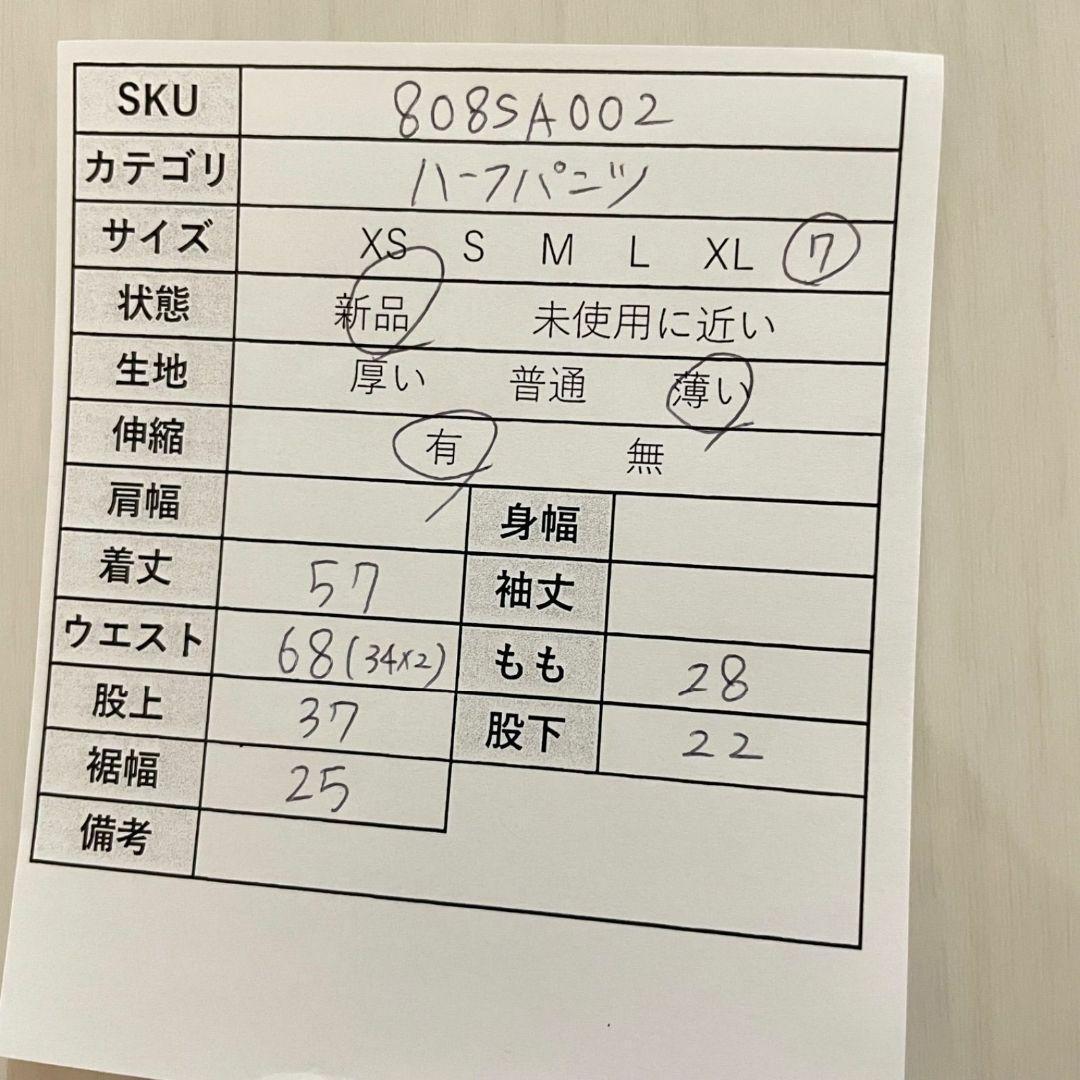 SKU 808SA002
カテゴリ ハーフパンツ
サイズ XS S M L XL 7
状態 新品 未使用に近い
生地 厚い 普通 薄い
伸縮 有 無
肩幅 身幅
着丈 57 袖丈
ウエスト 68(34×2) もも 28
股上 37 股下 22
裾幅 25
備考